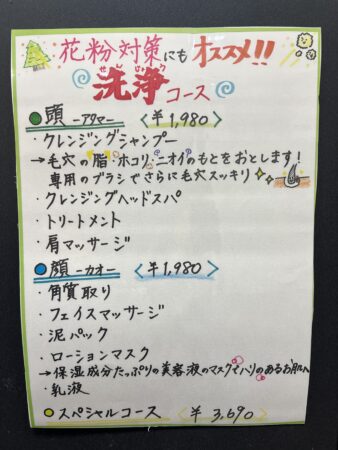 花粉対策にもオススメ!!
せんじょう
洗浄コース
頭-アタマ- <¥1,980>
・クレンジングシャンプー
→毛穴の脂・ホコリ・ニオイのもとをおとします!
専用のブラシでさらに毛穴スッキリ
・クレンジングヘッドスパ
・トリートメント
・肩マッサージ
顔-カオ- <¥1,980>
・角質取り
・フェイスマッサージ
・泥パック
・ローションマスク
→保湿成分たっぷりの美容液のマスクでハリのあるお肌へ
・乳液
スペシャルコース <¥3,690>